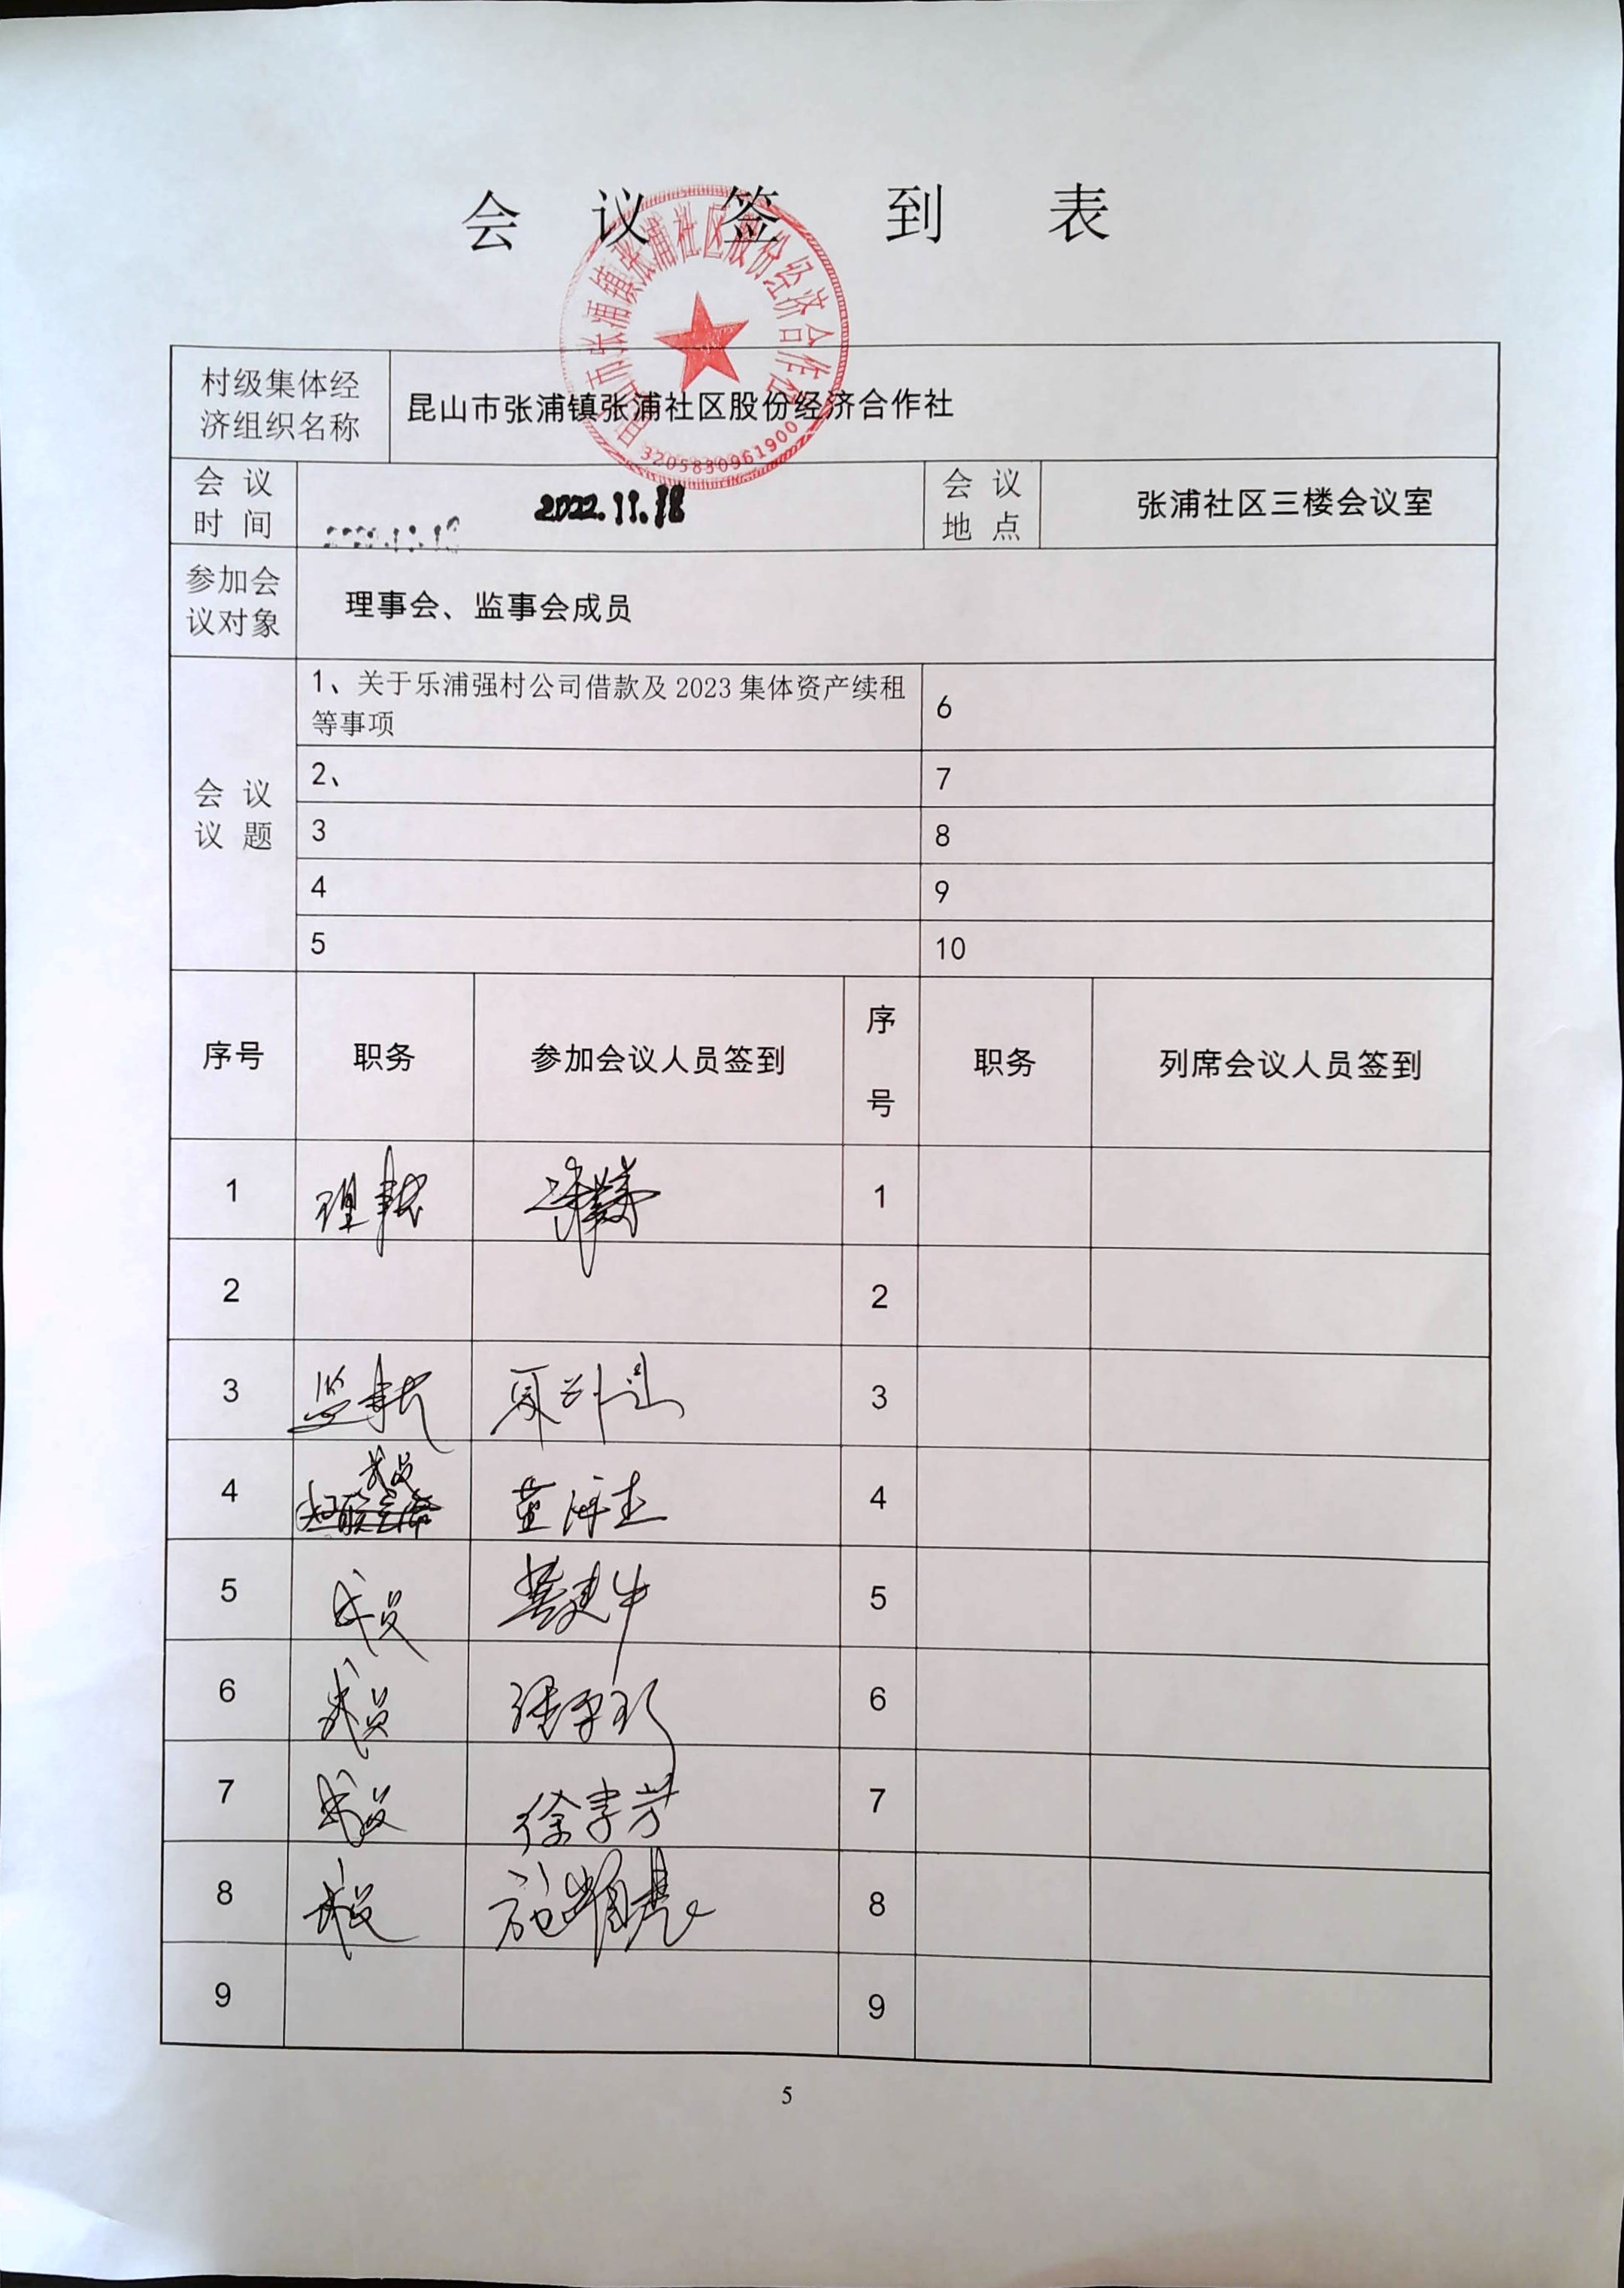 会 议 签 到 表
昆山市张浦镇张浦社区股份经济合作社
3205830961900
村级集体经
济组织名称
昆山市张浦镇张浦社区股份经济合作社
会 议
时 间
2022.11.18
会 议
地 点
张浦社区三楼会议室
参加会
议对象
理事会、监事会成员
会 议
议 题
1、关于乐浦强村公司借款及 2023 集体资产续租
等事项
6
2、
7
3
8
4
9
5
10
序号
职务
参加会议人员签到
序
号
职务
列席会议人员签到
1
理事长
1
2
2
3
监事长
3
4
成员
4
5
成员
5
6
成员
6
7
成员
徐李芳
7
8
成员
8
9
9
5